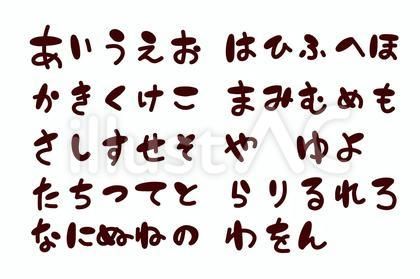 あいうえお はひふへほ
かきくけこ まみむめも
さしすせそ や ゆよ
たちつてと らりるれろ
なにぬねの わをん
illustAC